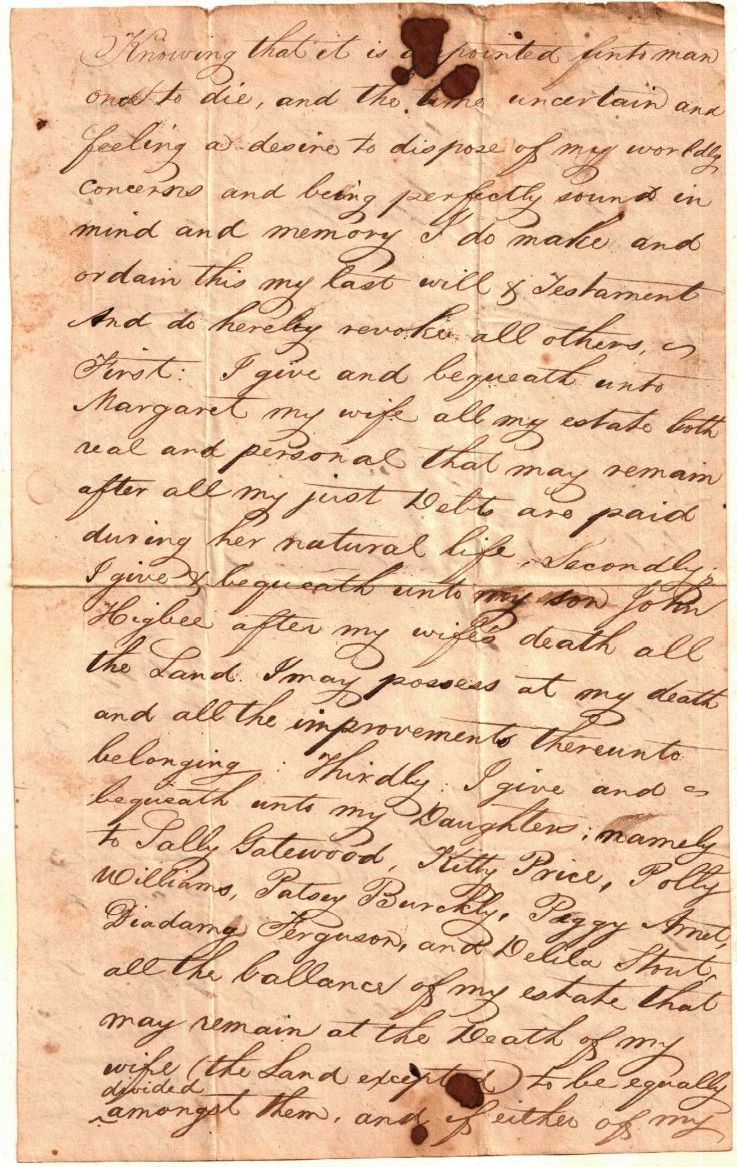 Knowing that it is appointed unto man
once to die, and the time uncertain and
feeling a desire to dispose of my worldly
concerns and being perfectly sound in
mind and memory I do make and
ordain this my last will & Testament
And do hereby revoke all others,
First: I give and bequeath unto
Margaret my wife all my estate both
real and personal that may remain
after all my just Debts are paid
during her natural life, Secondly,
I give & bequeath unto my son John
Higbee after my wife's death all
the Land I may possess at my death
and all the improvements thereunto
belonging : Thirdly : I give and
bequeath unto my Daughters; namely
to Sally Gatewood, Kitty Price, Polly
Williams, Patsey Burckly, Peggy Arnet,
Diadama Ferguson, and Delila Stout,
all the ballance of my estate that
may remain at the Death of my
wife (the Land excepted) to be equally
divided
amongst them, and if either of my